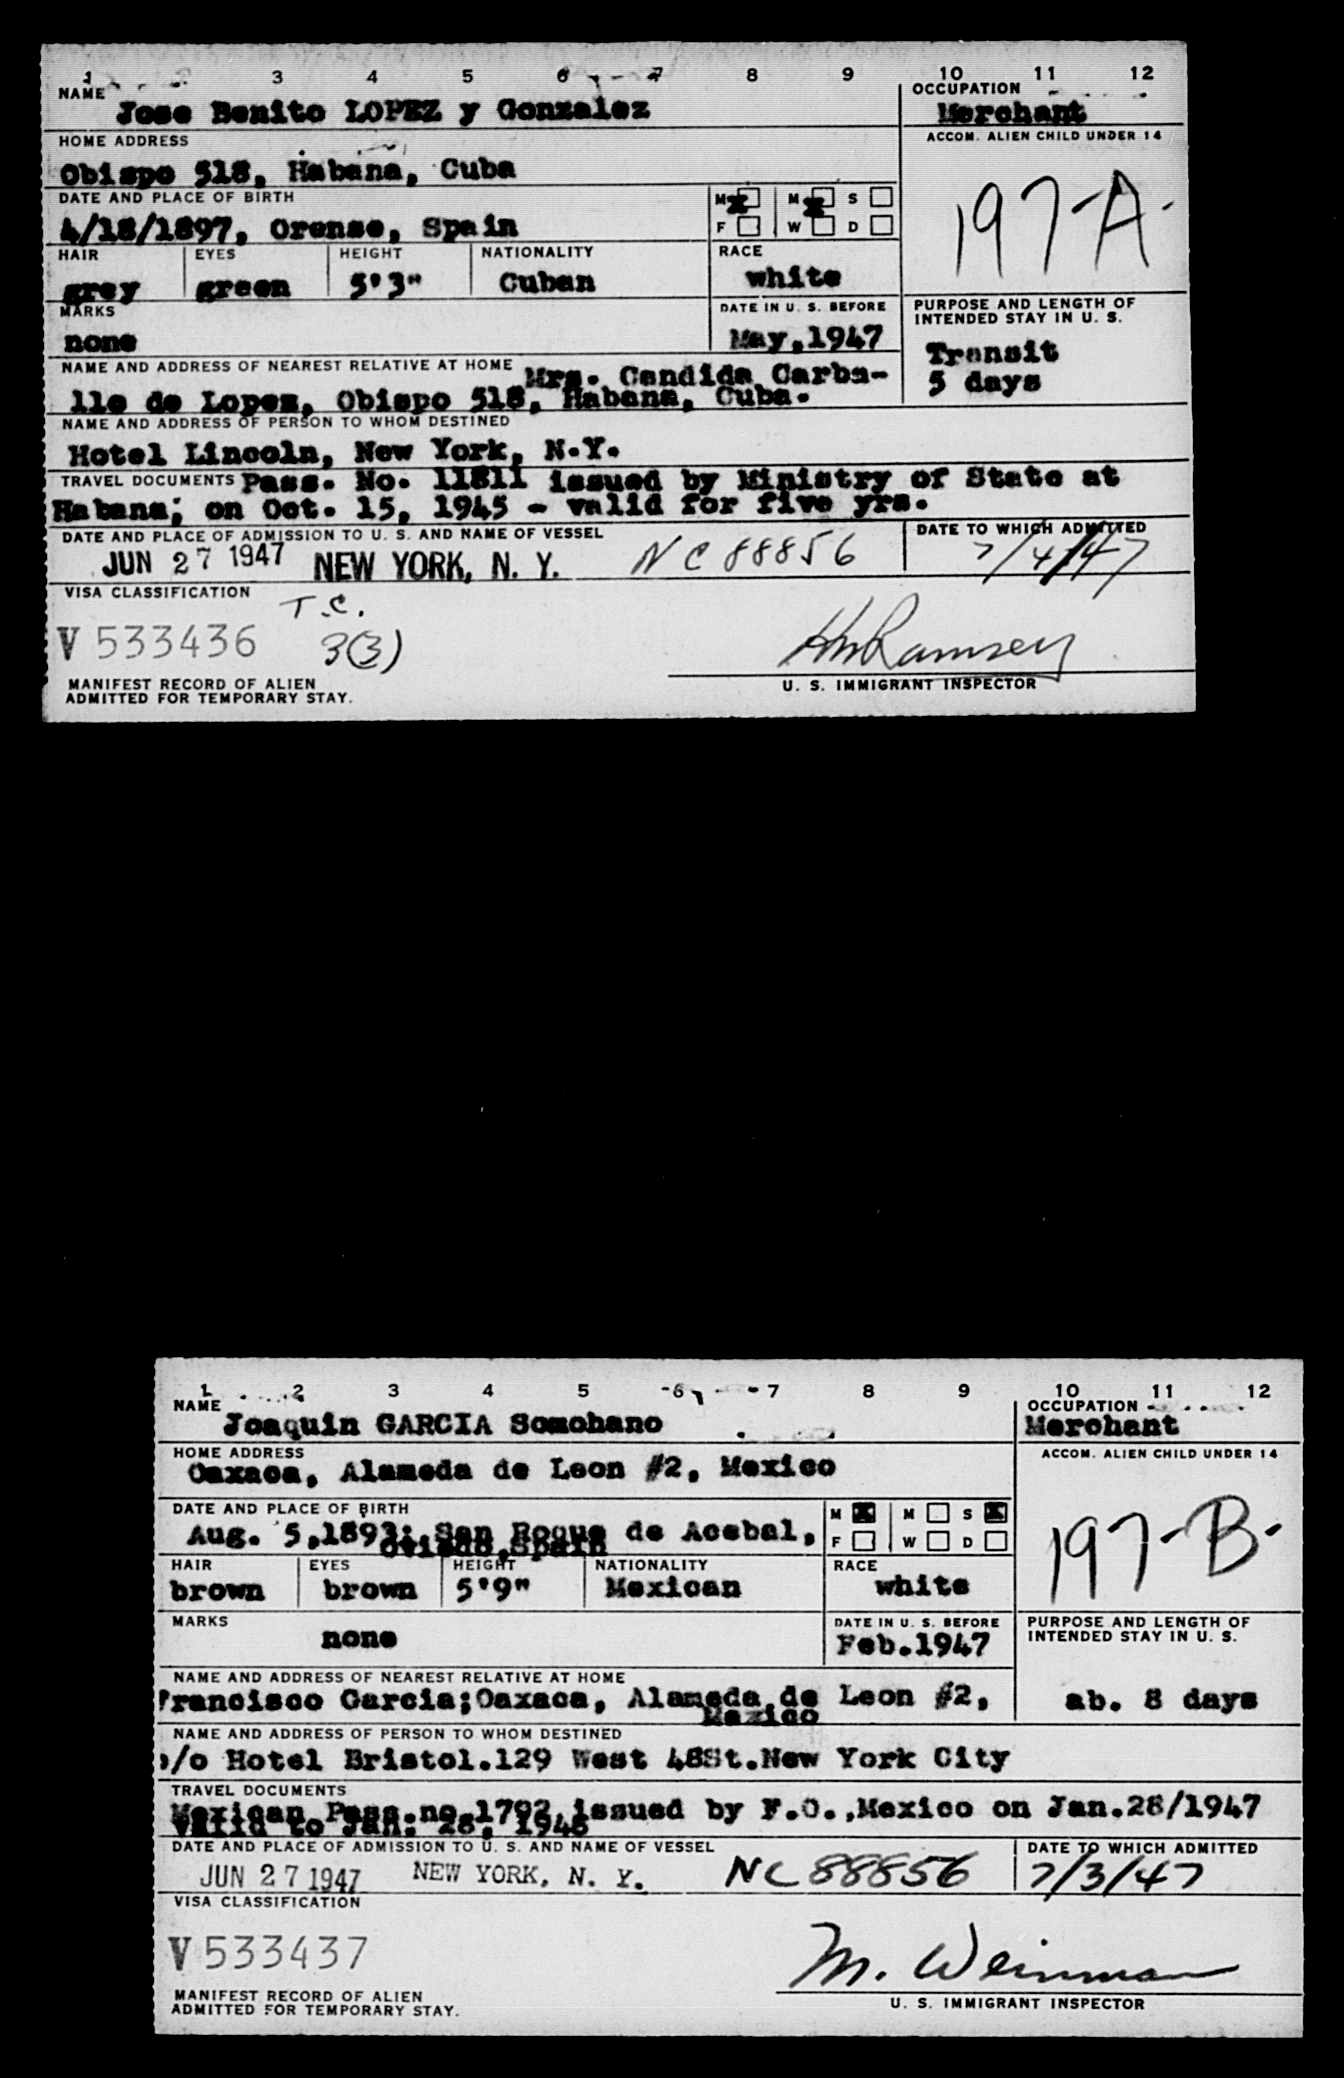 1 2 3 4 5 6 7 8 9 10 11 12
NAME OCCUPATION
Jose Benito LOPEZ y Gonzalez Merchant
HOME ADDRESS ACCOM. ALIEN CHILD UNDER 14
Obispo 518, Habana, Cuba
197-A-
DATE AND PLACE OF BIRTH M M S
4/18/1897, Orense, Spain F W D
HAIR EYES HEIGHT NATIONALITY RACE
grey green 5'3" Cuban white
MARKS DATE IN U. S. BEFORE PURPOSE AND LENGTH OF
INTENDED STAY IN U. S.
none May,1947 Transit
5 days
NAME AND ADDRESS OF NEAREST RELATIVE AT HOME Mrs. Candida Carba-
llo de Lopez, Obispo 518, Habana, Cuba.
NAME AND ADDRESS OF PERSON TO WHOM DESTINED
Hotel Lincoln, New York, N.Y.
TRAVEL DOCUMENTS Pass. No. 11811 issued by Ministry of State at
Habana; on Oct. 15, 1945 - valid for five yrs.
DATE AND PLACE OF ADMISSION TO U. S. AND NAME OF VESSEL DATE TO WHICH ADMITTED
JUN 27 1947 NEW YORK, N. Y. NC 88856 7/4/47
VISA CLASSIFICATION
T.C.
V 533436 3(3)
HM Ramsey
MANIFEST RECORD OF ALIEN
ADMITTED FOR TEMPORARY STAY.
U. S. IMMIGRANT INSPECTOR
1 2 3 4 5 6 7 8 9 10 11 12
NAME OCCUPATION
Joaquin GARCIA Somohano Merchant
HOME ADDRESS ACCOM. ALIEN CHILD UNDER 14
Oaxaca, Alameda de Leon #2, Mexico
197-B-
DATE AND PLACE OF BIRTH M M S
Aug. 5,1893; San Roque de Acebal, F W D
Oviedo,Spain
HAIR EYES HEIGHT NATIONALITY RACE
brown brown 5'9" Mexican white
MARKS DATE IN U. S. BEFORE PURPOSE AND LENGTH OF
INTENDED STAY IN U. S.
none Feb.1947
NAME AND ADDRESS OF NEAREST RELATIVE AT HOME
Francisco Garcia;Oaxaca, Alameda de Leon #2, ab. 8 days
Mexico
NAME AND ADDRESS OF PERSON TO WHOM DESTINED
c/o Hotel Bristol.129 West 48St.New York City
TRAVEL DOCUMENTS
Mexican Pass.no.1792,issued by F.O.,Mexico on Jan.28/1947
valid to Jan. 28, 1948
DATE AND PLACE OF ADMISSION TO U. S. AND NAME OF VESSEL DATE TO WHICH ADMITTED
JUN 27 1947 NEW YORK, N. Y. NC 88856 7/3/47
VISA CLASSIFICATION
V 533437
M. Weinman
MANIFEST RECORD OF ALIEN
ADMITTED FOR TEMPORARY STAY.
U. S. IMMIGRANT INSPECTOR